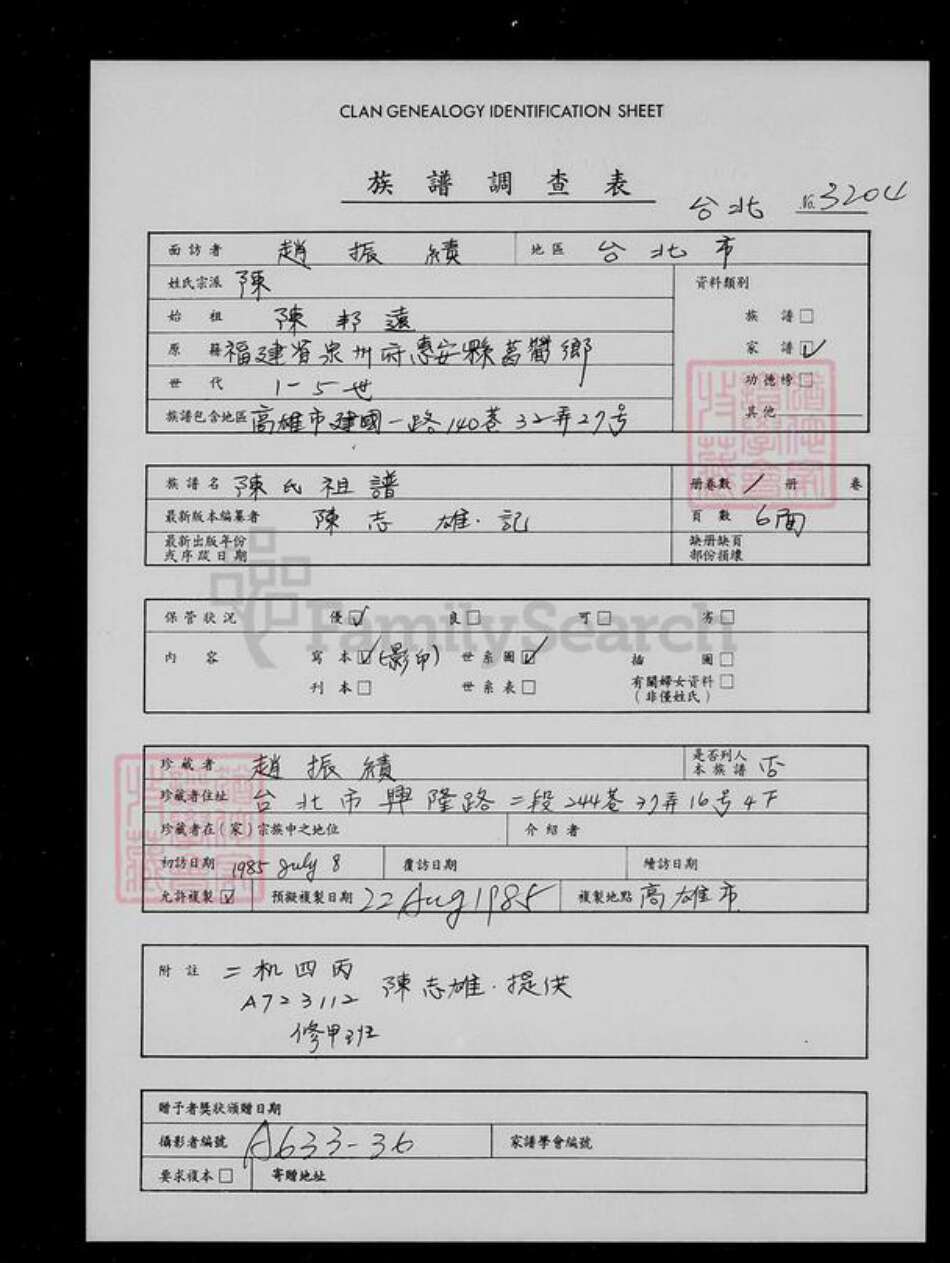 CLAN GENEALOGY IDENTIFICATION SHEET
族譜調查表
台北 No. 3204
面訪者 趙振績 地區 台北市
姓氏宗派 陳 資料類別
始祖 陳邦遠 族譜□
原籍 福建省泉州府惠安縣 鄉 家譜☑
世代 1-5世 功德榜□
族譜包含地區 高雄市建國一路140巷32弄27号 其他
族譜名 陳氏祖譜 册卷數 1 册 卷
最新版本編纂者 陳志雄.記 頁數 6面
最新出版年份或序跋日期 缺册缺頁部份損壞
FamilySearch
保管狀況 優☑ 良□ 可□ 劣□
內容 寫本☑(影印) 世系圖☑ 插圖□
刊本□ 世系表□ 有關婦女資料□
(非僅姓氏)
珍藏者 趙振績 是否列入本族譜 否
珍藏者住址 台北市興隆路二段244巷37弄16号4F
珍藏者在(家)宗族中之地位 介紹者
初訪日期 1985 July 8 覆訪日期 續訪日期
允許複製☑ 預擬複製日期 22 Aug 1985 複製地點 高雄市
附註 二机四丙 陳志雄.提供
A723112
修甲班
贈予者獎狀頒贈日期
攝影者編號 A633-36 家譜學會編號
要求複本□ 寄贈地址